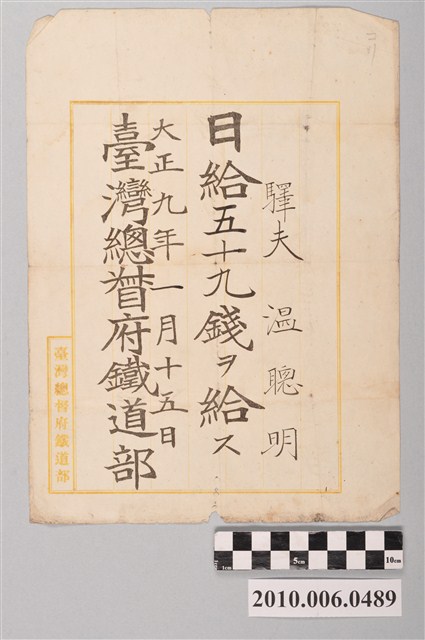 驛夫 温聰明
日給五十九錢ヲ給ス
大正九年一月十五日
臺灣總督府鐵道部
臺灣總督府鐵道部
1cm 5cm 10cm
2010.006.0489